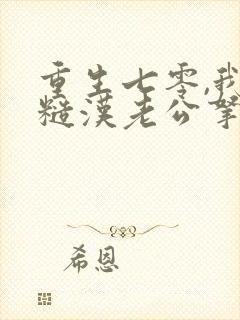 重生七零,我
糙漢老公拏
希恩